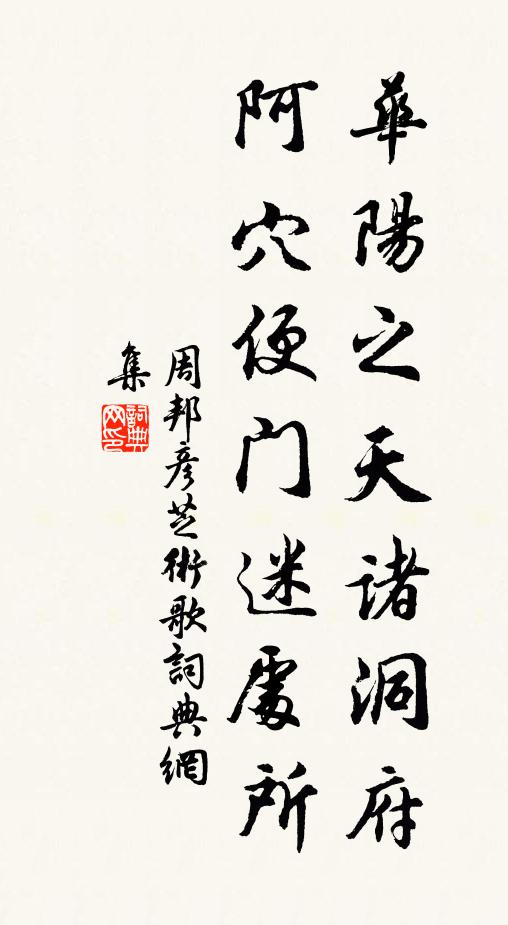 華陽之天諸洞府
阿穴便门迷處所
周邦彥芝術歌詞典網
集
詞典
网印